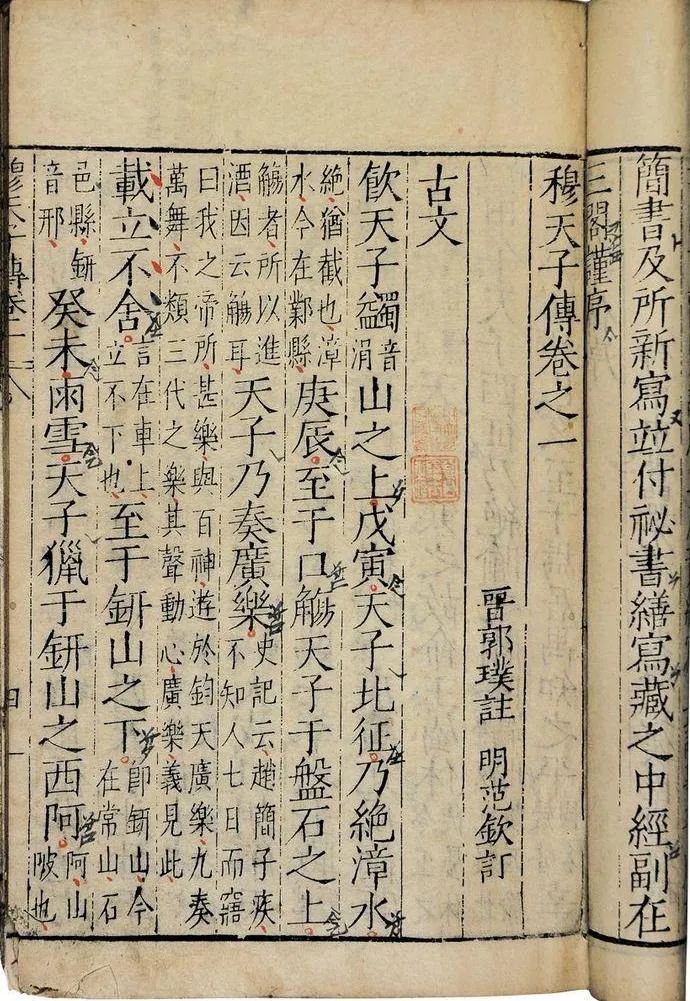 簡書及所新寫竝付祕書繕寫藏之中經副在
三閣謹序
穆天子傳卷之一
晉郭璞註 明范欽訂
古文
飲天子蠲音涓山之上戊寅天子北征乃絕漳水
絕猶截也漳水今在鄴縣庚辰至于口觴天子于盤石之上
觴者所以進酒因云觴耳天子乃奏廣樂史記云趙簡子疾不知人七日而寤
曰我之帝所甚樂與百神遊於鈞天廣樂九奏萬舞不類三代之樂其聲動心廣樂義見此
載立不舍言在車上立不下也至于鈃山之下即鈃山今在常山石
邑縣鈃音邢癸未雨雪天子獵于鈃山之西阿阿山陂也
穆天子傳卷一